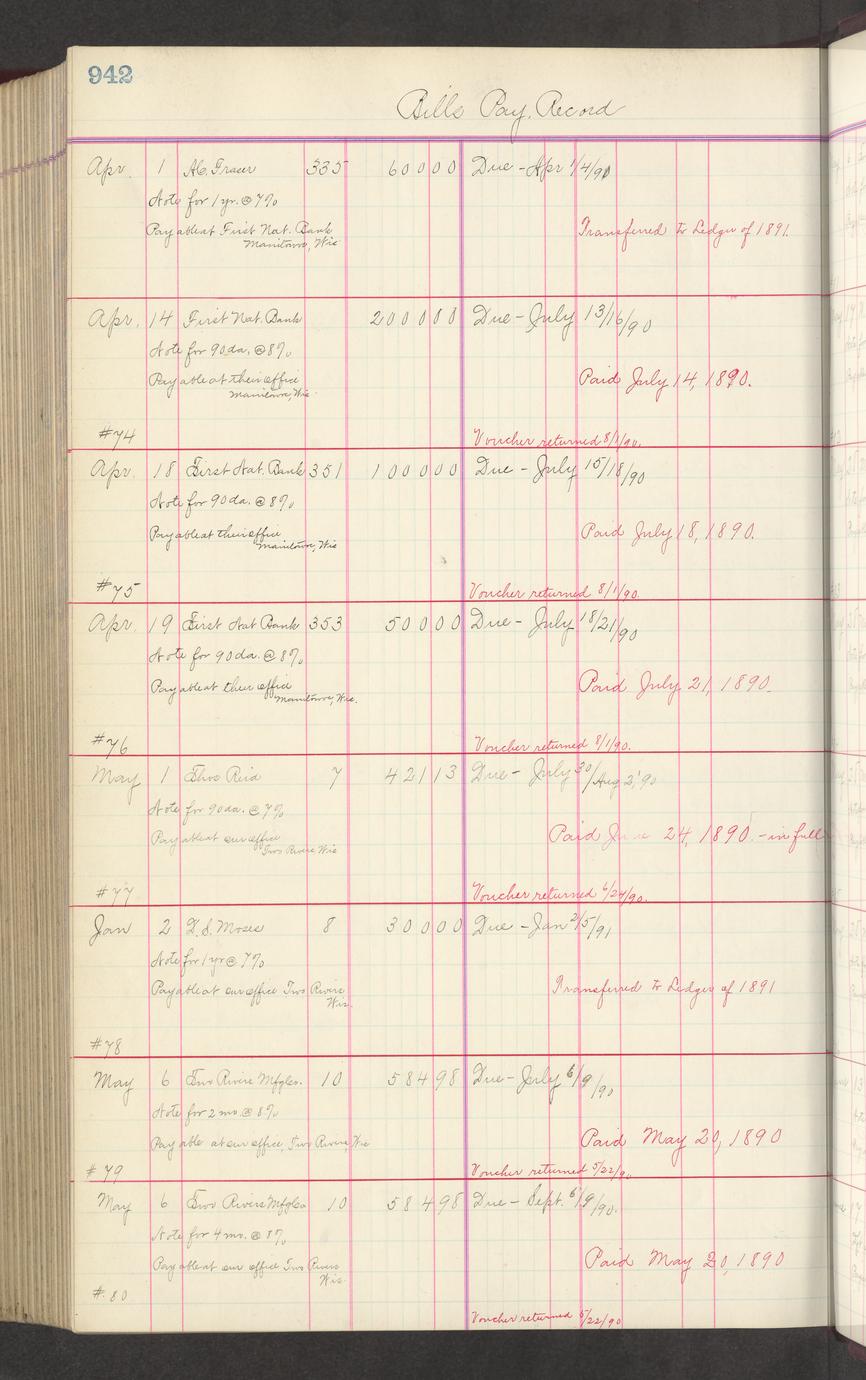 942
Bills Pay. Record
Apr. 1 Al. Fraser 335 600 00 Due - Apr 1/4/90
Note for 1 yr. @ 7%
Payable at First Nat. Bank
Manitowoc, Wis
Transferred to Ledger of 1891.
Apr. 14 First Nat. Bank 2000 00 Due - July 13/16/90
Note for 90 da. @ 8%
Payable at their office
Manitowoc, Wis.
Paid July 14, 1890.
#74 Voucher returned 8/1/90.
Apr. 18 First Nat. Bank 351 1000 00 Due - July 15/18/90
Note for 90 da. @ 8%
Payable at their office
Manitowoc, Wis
Paid July 18, 1890.
#75 Voucher returned 8/1/90.
Apr. 19 First Nat Bank 353 500 00 Due - July 18/21/90
Note for 90 da. @ 8%
Payable at their office
Manitowoc, Wis.
Paid July 21, 1890.
#76 Voucher returned 8/1/90.
May 1 Thos Reid 7 421 13 Due - July 30/Aug 2 '90
Note for 90 da. @ 7%
Payable at our office
Two Rivers Wis
Paid June 24, 1890. - in full
#77 Voucher returned 6/24/90.
Jan 2 D. S. Moses 8 300 00 Due - Jan 2/5/91
Note for 1 yr @ 7%
Payable at our office Two Rivers
Wis.
Transferred to Ledger of 1891
#78
May 6 Two Rivers Mfg Co. 10 584 98 Due - July 6/9/90
Note for 2 mo. @ 8%
Payable at our office, Two Rivers, Wis
Paid May 20, 1890
#79 Voucher returned 5/22/90
May 6 Two Rivers Mfg Co 10 584 98 Due - Sept. 6/9/90.
Note for 4 mo. @ 8%
Payable at our office Two Rivers
Wis.
Paid May 20, 1890
#80
Voucher returned 5/22/90